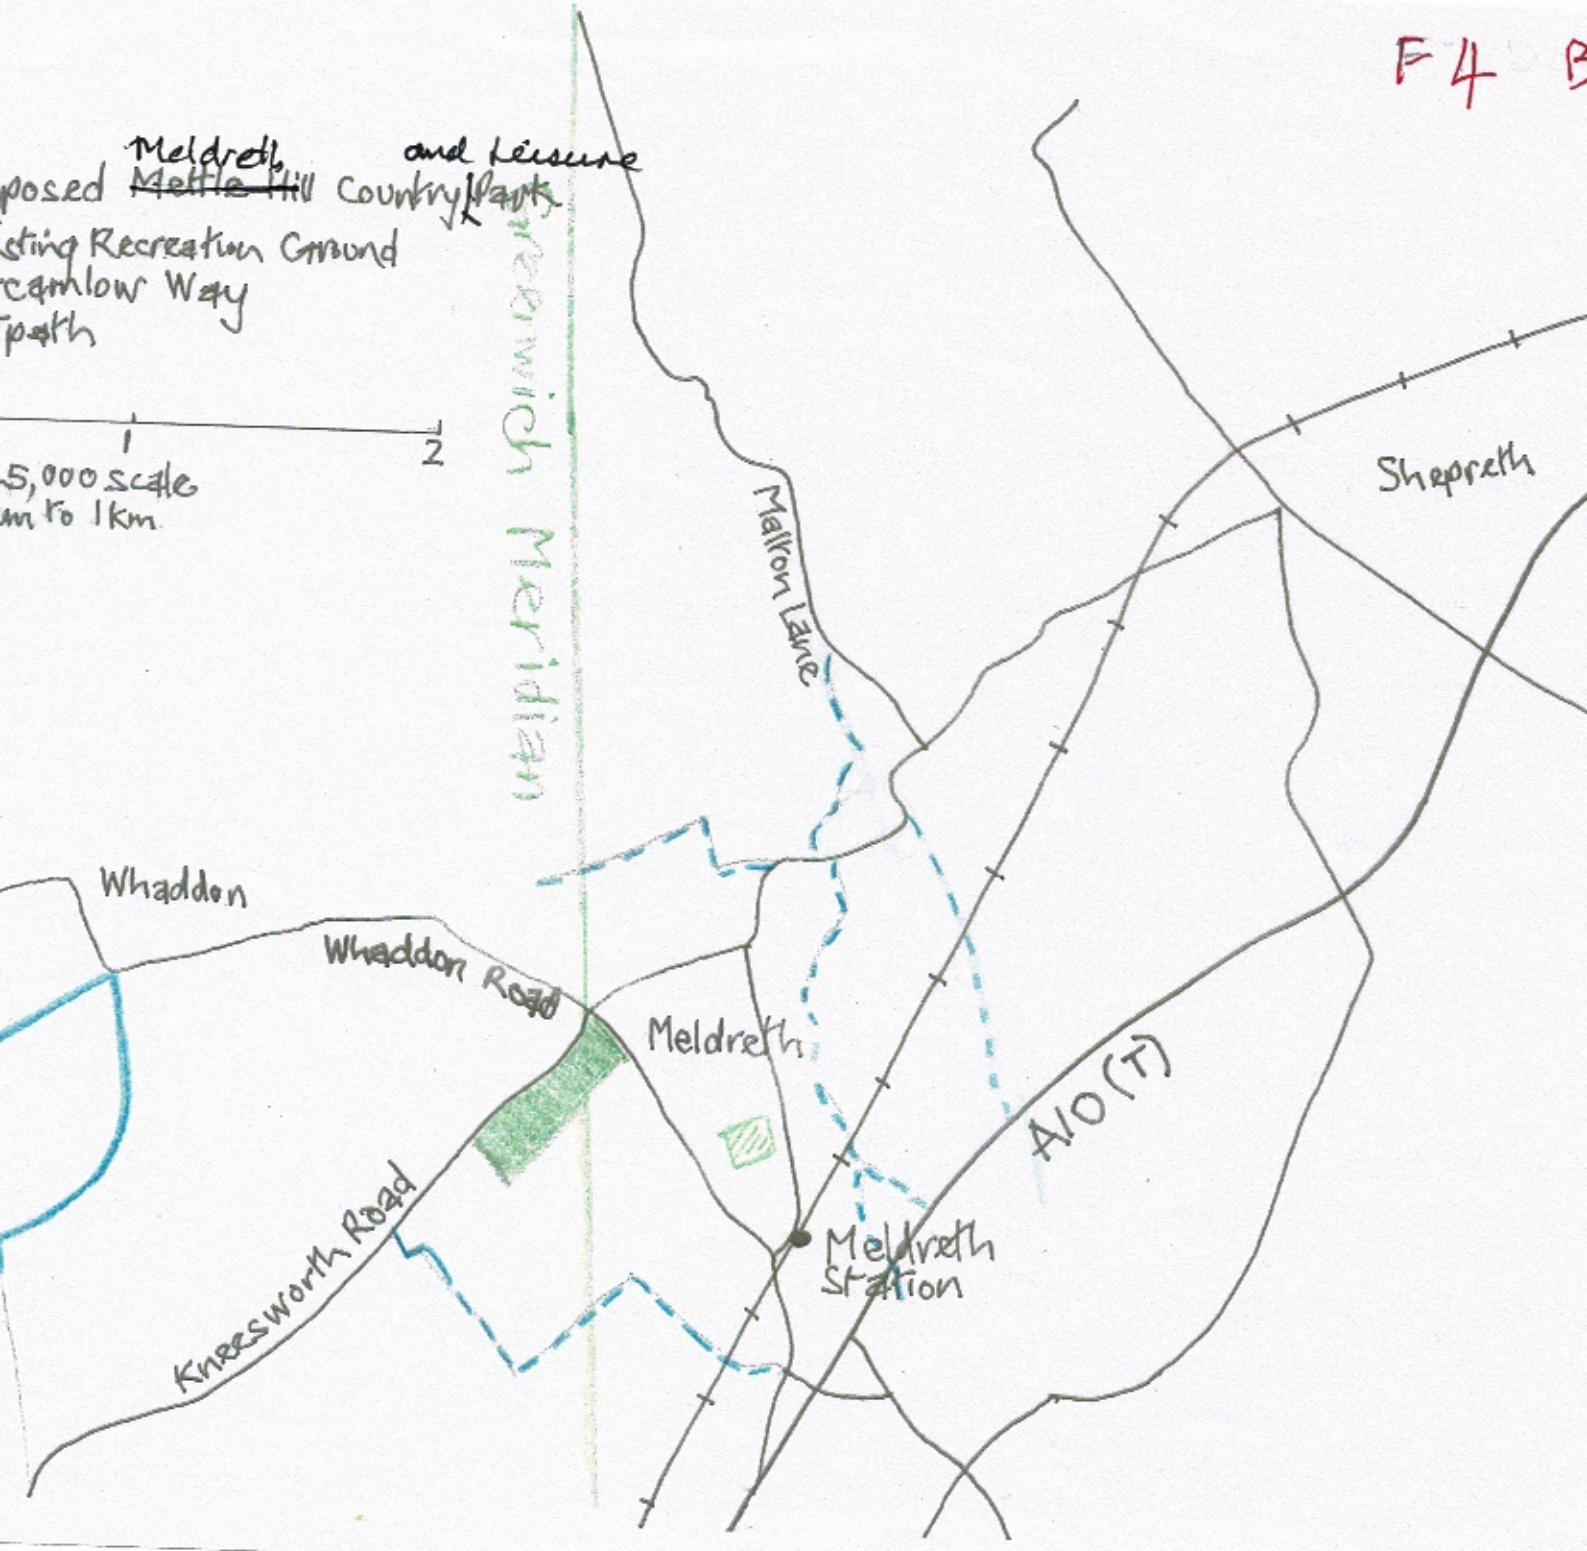 F4 B
Meldreth and Leisure
posed Mettle Hill Country Park
sting Recreation Ground
rcamlow Way
tpath
1 2
5,000 scale
m to 1km
Greenwich Meridian
Malton Lane
Shepreth
Whaddon
Whaddon Road
Meldreth
A10(T)
Kneesworth Road
Meldreth
Station